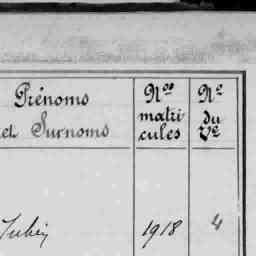 Prénoms
et Surnoms
Nos
matri
cules
No
du
Vo
1918 4